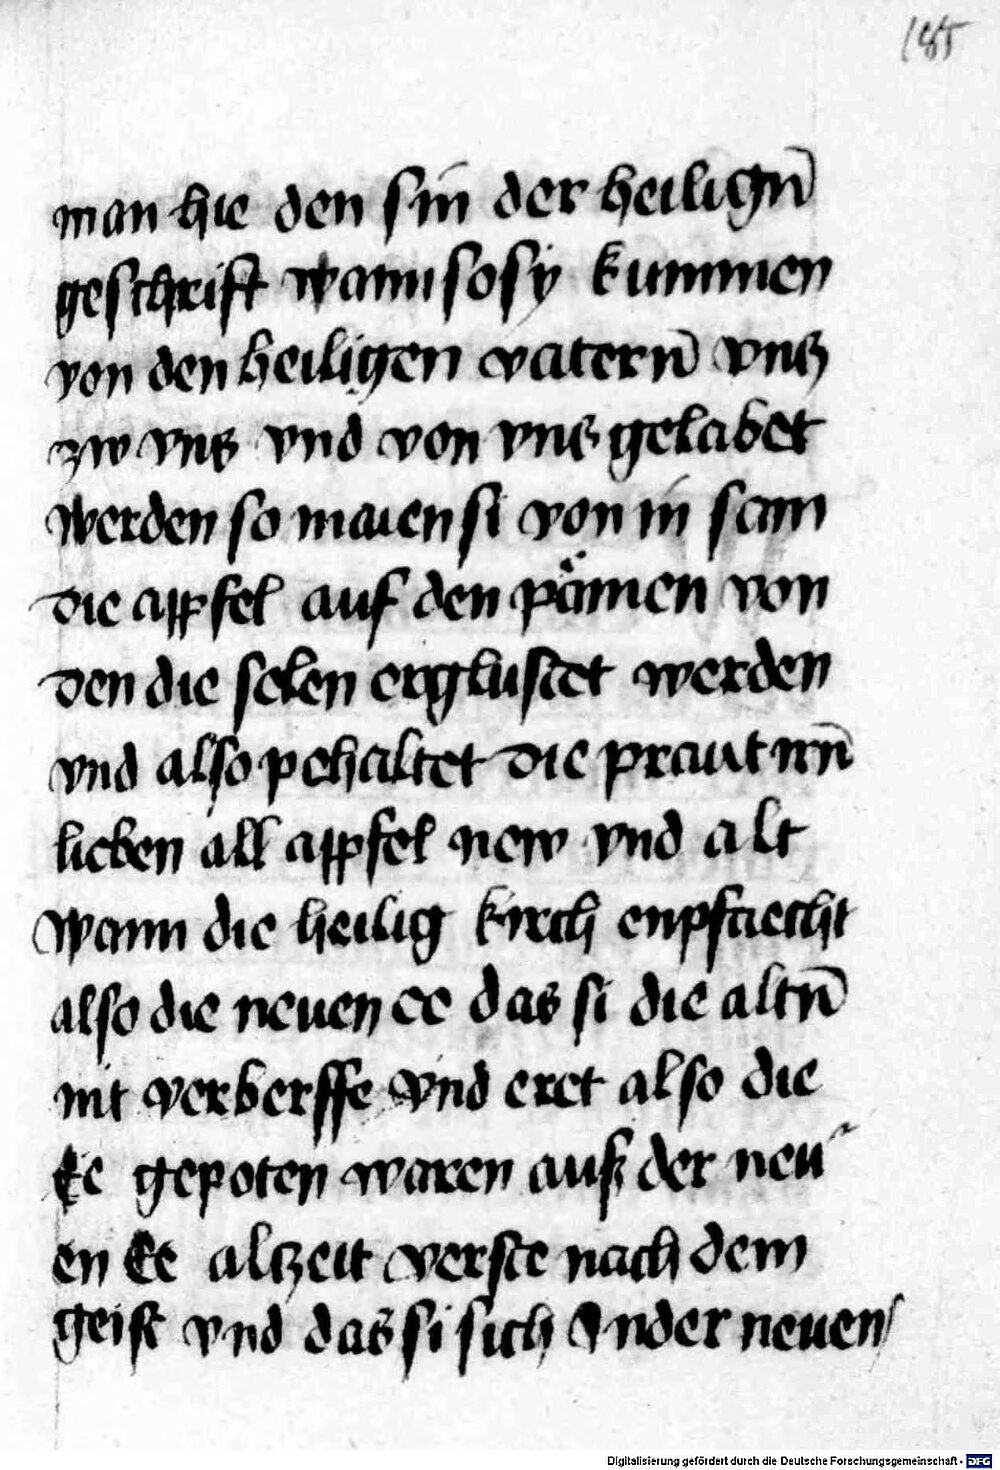 185
man hie den sin der heiligñ
geschrift wann so sy kummen
von den heiligen vaterñ vns
zw vns vnd von vns gelabet
werden so maien si von in sam
die appfel auf den pämen von
den die selen erglustet werden
vnd also pehaltet die praut irñ
lieben all appfel new vnd alt
wann die heilig kirch enpfaecht
also die neuen ee das si die altñ
nit verberffe vnd eret also die
Ee gepoten waren auß der neu
en Ee altzeit verste nach dem
geist vnd das si sich Inder neuen
Digitalisierung gefördert durch die Deutsche Forschungsgemeinschaft - DFG